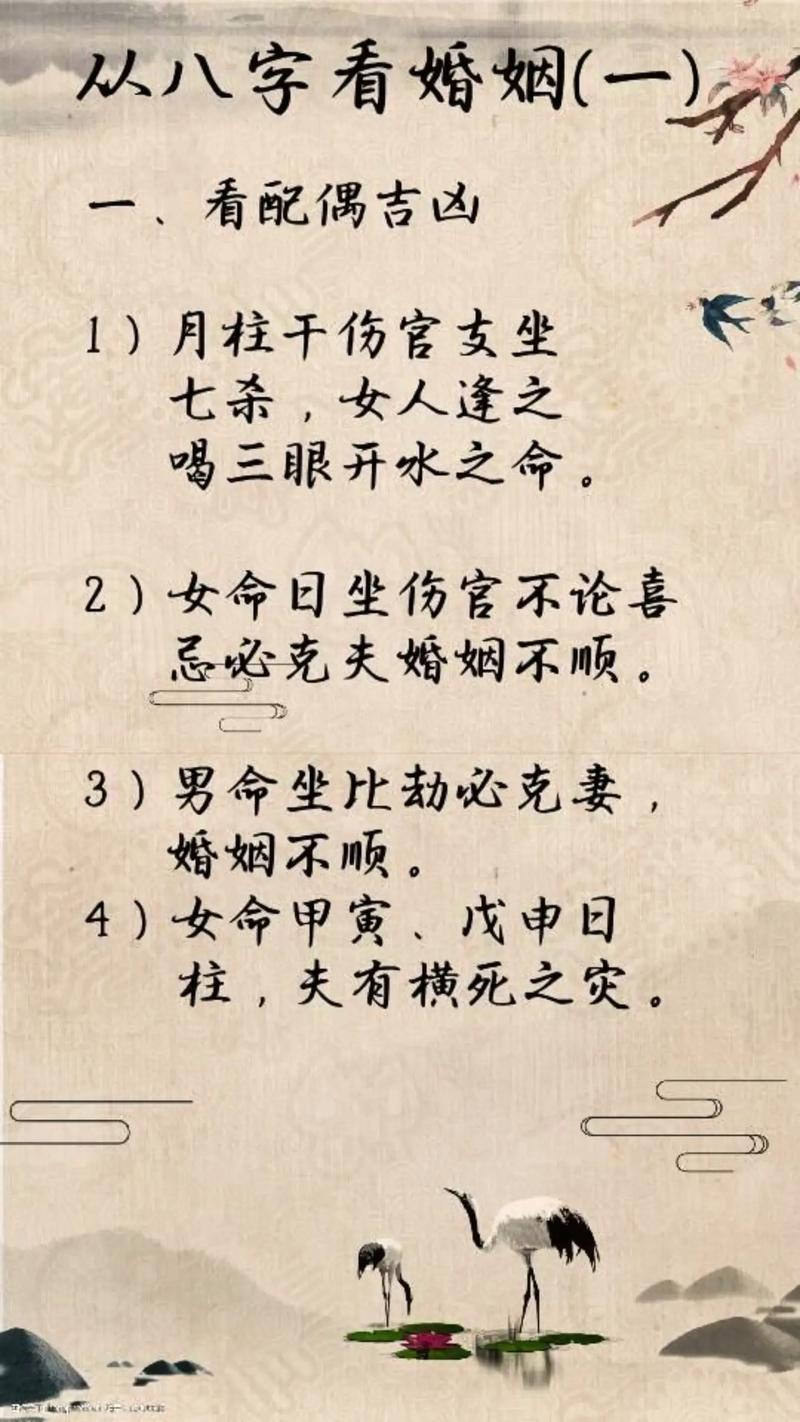 从八字看婚姻(一)
一、看配偶吉凶
1)月柱干伤官支坐
七杀,女人逢之
喝三眼开水之命。
2)女命日坐伤官不论喜
忌必克夫婚姻不顺。
3)男命坐比劫必克妻,
婚姻不顺。
4)女命甲寅、戊申日
柱,夫有横死之灾。